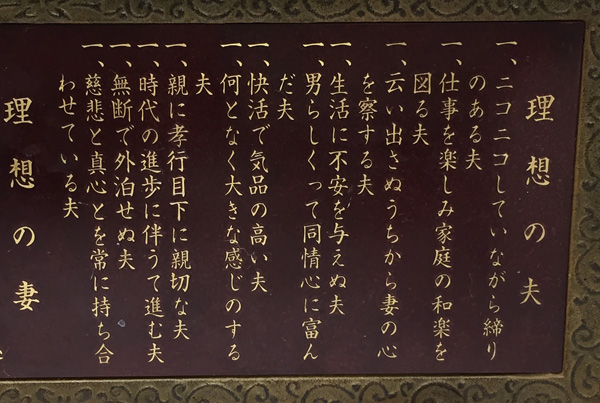 理想の夫
一、ニコニコしていながら締り
のある夫
一、仕事を楽しみ家庭の和楽を
図る夫
一、云い出さぬうちから妻の心
を察する夫
一、生活に不安を与えぬ夫
一、男らしくって同情心に富ん
だ夫
一、快活で気品の高い夫
一、何となく大きな感じのする
夫
一、親に孝行目下に親切な夫
一、時代の進歩に伴うて進む夫
一、無断で外泊せぬ夫
一、慈悲と真心とを常に持ち合
わせている夫
理想の妻